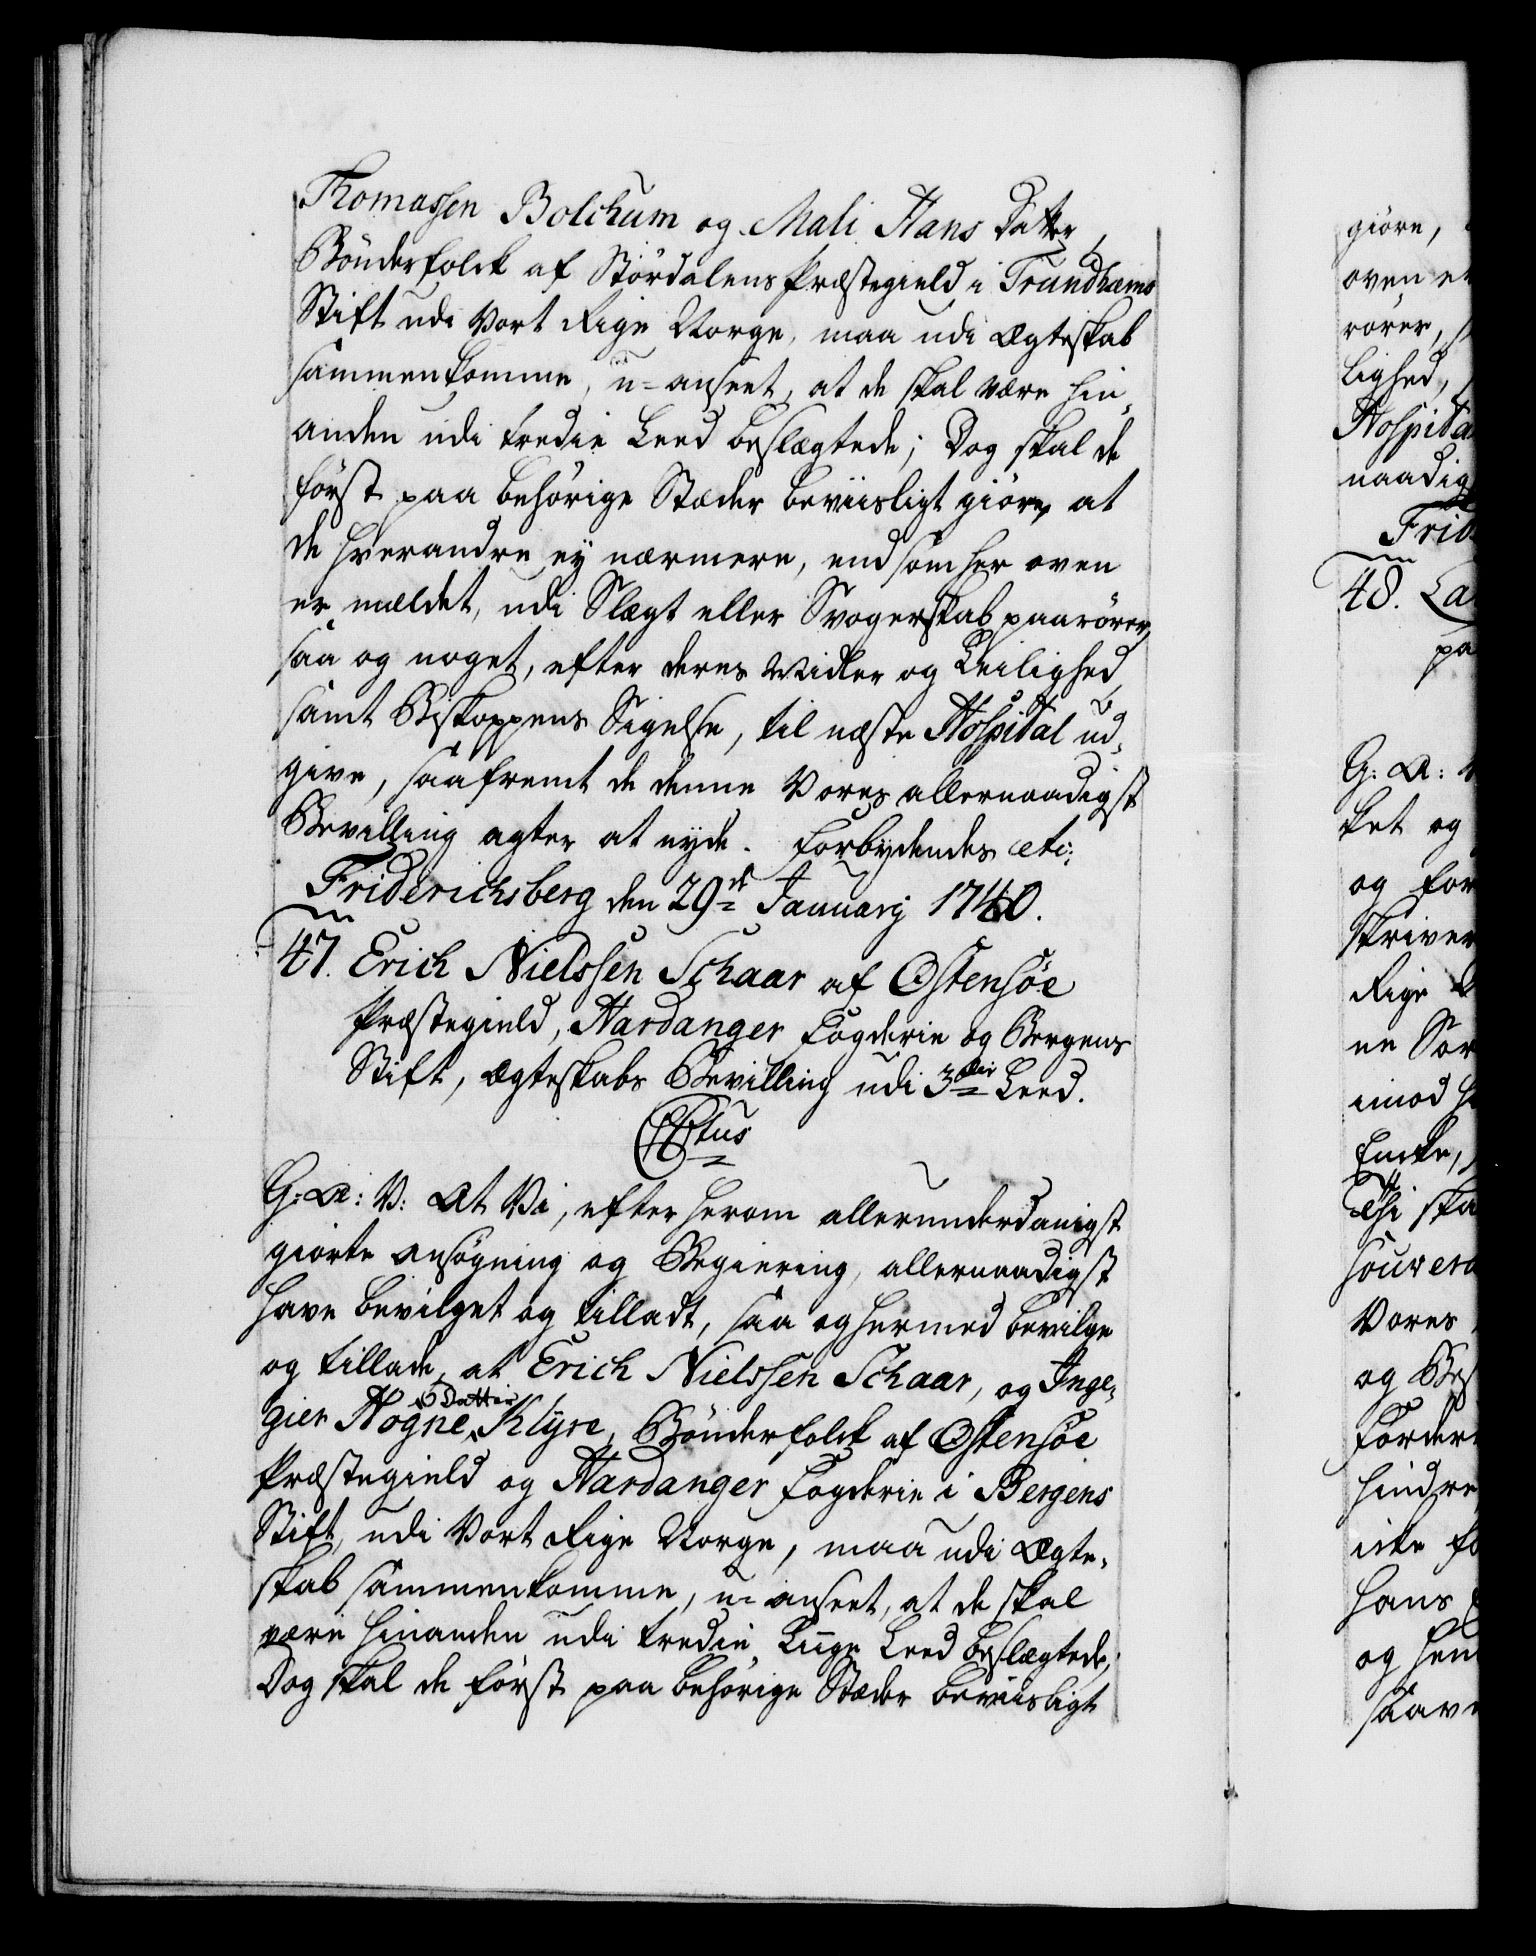 Thomassen Bolchum og Mali Hans Datter,
Bönderfolck af Stördalens Præstegield i Trundhæms
Stift udi Vort Rige Norge, maa udi Ægteskab
sammenkomme, u-anseet, at de skal være hin-
anden udi tredie Leed beslægtede; Dog skal de
först paa behörige Stæder beviisligt giöre, at
de hverandre ey nærmere, end som her oven
er meldet, udi Slægt eller Svogerskab paarörer,
saa og noget, efter deres Midler og Leilighed,
samt Biskoppens Sigelse, til næste Hospital ud-
give, saafremt de denne Vores allernaadigst
Bevilling agter at nyde. Forbydendes etc:
Friderichsberg den 29de Januarij 1740.
47. Erich Nielssen Schaar af Ostensöe
Præstegield, Hardanger Fogderie og Bergens
Stift, Ægteskabs Bevilling udi 3die Leed.
G: A: V: At Vi, efter herom allerunderdanigst
giorte Ansögning og Begiering, allernaadigst
have bevilget og tilladt, saa og hermed bevilge
og tillade, at Erich Nielssen Schaar, og Inge-
gier Hogne Datter Klyve, Bönderfolck af Ostensöe
Præstegield og Hardanger Fogderie i Bergens
Stift, udi Vort Rige Norge, maa udi Ægte-
skab sammenkomme, u-anseet, at de skal
være hinanden udi tredie Liige Leed beslægtede;
Dog skal de först paa behörige Stæder beviisligt
giöre,
oven
rörer,
lighed,
Hospital
naadig
Frid
48. La
pa
G: A: V
ket og
og for
skriver
Rige
ne Sor
imod h
Encke,
Thi ska
souvera
Vores
og Bes
Forder
hindre
icke fo
hans
og hen
saave